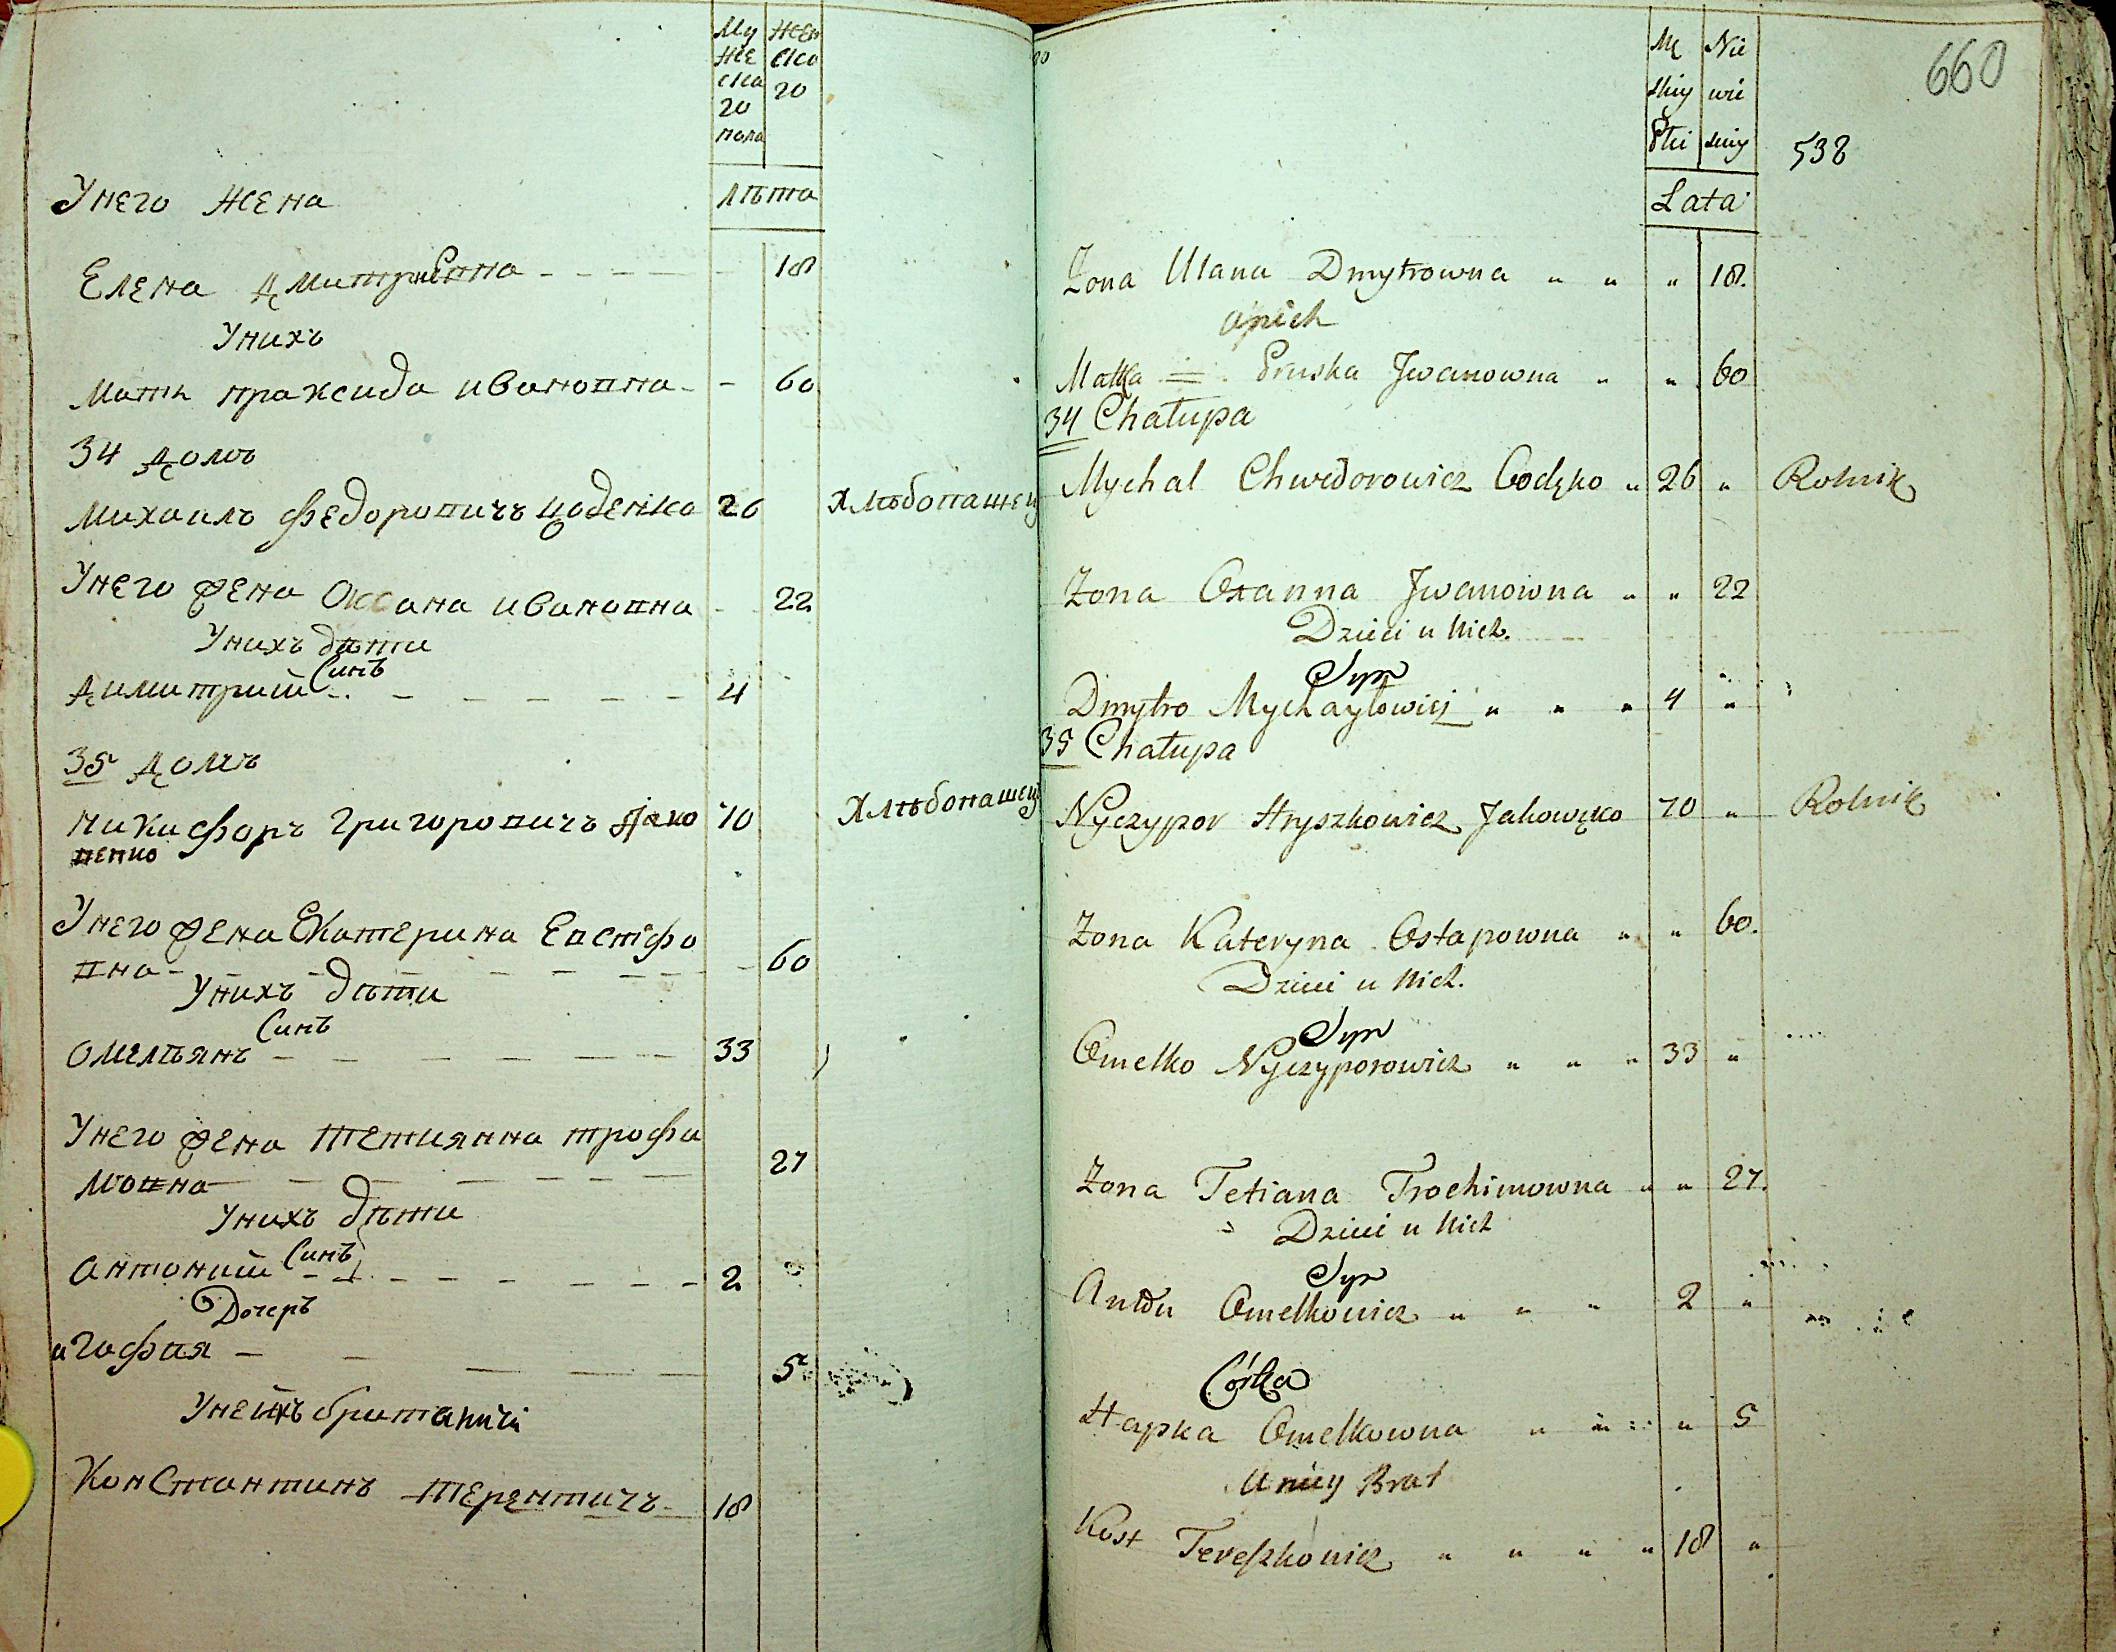 Му Жен
же ско
ска 20
20
пола
лѣта
Унего Жена
Елена Димитриевна - - - - 18
Унихъ
Мати праксида ивановна - - 60
34 домъ
Михаилъ федоровичъ Цоденко 26 Хлѣбопашец
Унего Жена Оксана ивановна - - 22
Унихъ дѣти
Синъ
Димитрий - - - - - - 4
35 домъ
никифоръ григоровичъ Яко 70 Хлѣбопашец
венко
Унего Жена Екатерина Евстфо
вна - - - - - - - 60
Унихъ дѣти
Синъ
Омелѣянъ - - - - - - 33
Унего Жена Тетиянна трофи
мовна - - - - - - 27
Унихъ дѣти
Синъ
антоний - - - - - - 2
Дочеръ
агафия - - - - 5
Константинъ терентичъ - 18
660
Mę Nie
skiy wie
Płci skiy
538
Lata
Żona Ulana Dmytrowna " " " 18.
Matka Pruska Jwanowna " " 60
34 Chałupa
Mychal Chwedorowicz Codęko " 26 " Rolnik
Żona Oxanna Jwanowna " " 22
Dzieci u Nich.
Syn
Dmytro Mychayłowicz " " " 4 "
35 Chałupa
Nyczypor Hryszkowicz Jakowęko 70 " Rolnik
Żona Kateryna Ostapowna " " 60.
Dzieci u Nich.
Syn
Omelko Nyczyporowicz " " " 33 "
Żona Tetiana Trochimowna " " 27.
Dzieci u Nich
Syn
Anton Omelkowicz " " " 2 "
Córka
Hapka Omelkowna " " " 5
U niey Brat
Kost Tereszkowicz " " " " 18 "